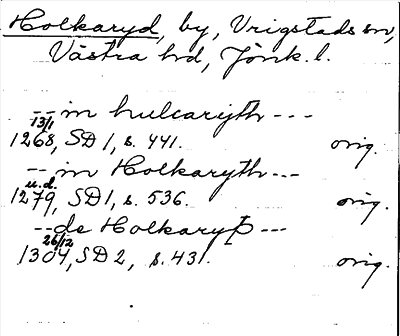 Holkaryd, by, Vrigstads sn,
Västra hd, Jönk. l.
-- in hulcarijth ---
13/1
1268, SD 1, s. 441. orig.
-- in Holkaryth ---
u.d.
1279, SD 1, s. 536. orig.
-- de Holkaryþ ---
26/12
1304, SD 2, s. 431. orig.